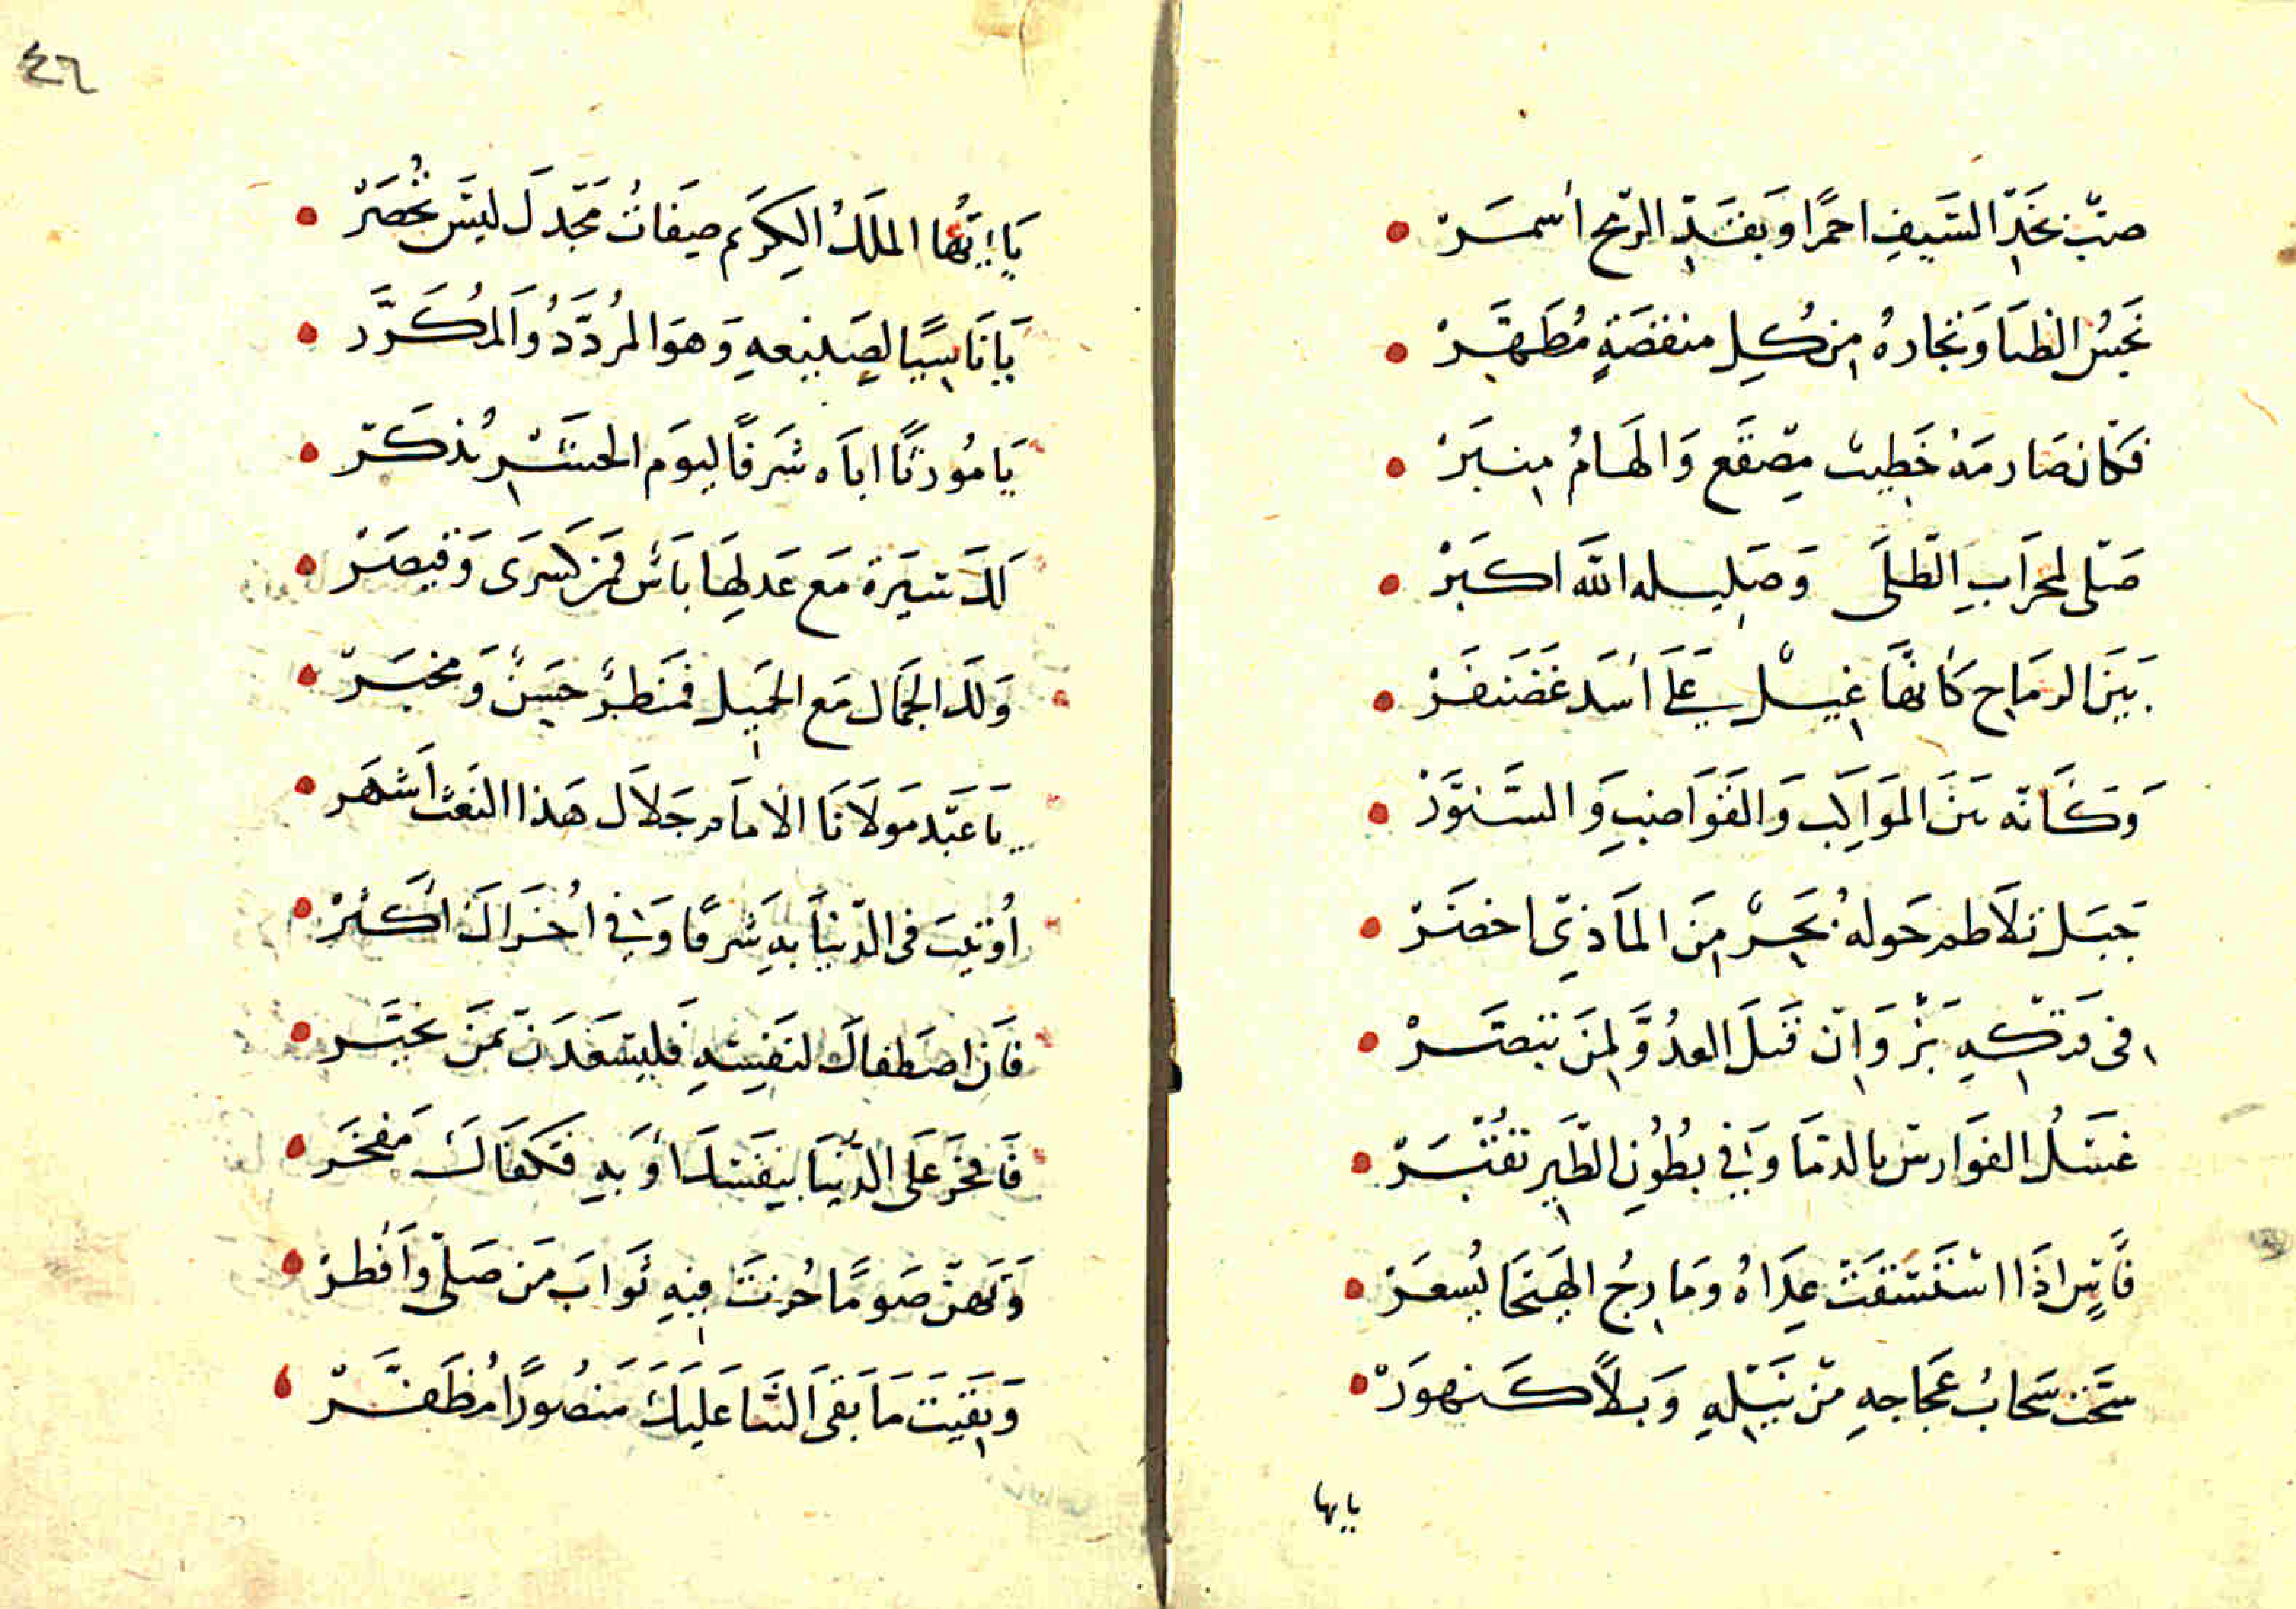 صبّ بخدّ السَّيفِ احمرًا وَبقدّ الرّمح أسمَرْ
نَجسُ الظبَا وَنجارهُ مِن كُلِ منقصَةٍ مُطَهَّرْ
فكأن صَارمَهُ خَطِيبٌ مِصْقَع وَالهَامُ مِنبَرْ
صَلّى لمحرَابِ الطّلَى وَصَليله الله اكبَرْ
بَينَ الرمَاح كَأنهَّا غِيلٌ عَلَى أسَد غَضَنفَرْ
وَكَأنّه بَينَ المَوَاكِب وَالقَوَاضِبِ وَالسَّنوَّرْ
جَبَل تَلاَطم حَوله بَحرٌ مِنَ المَاذيّ اخضَرْ
فى دَرْكِهِ بَرْ وَإن قَتلَ العدُوَّ لِمنَ تبَصَّرْ
غسَلُ الفوَارس بالدمَا وَفي بطُونِ الطَّير تقُبَرْ
وَمَارِجُ الهَيجَا يُسعَرْ
سَحَّت سَحَابُ عَجَاجهِ مِن نَبلِهِ وَبلاً كَنهوَرْ
يايها
يَا أيّهُا الملَكُ الكِرَيم صِفَاتُ مَجّدكَ ليسَ تُحصَرْ
يَا نَاسِيًا لصَنيعهِ وَهوَ المرُدَّدُ وَالمُكَرَّر
يَا مُورثًا ابَاه شَرَفًا ليوَم الحشرِ يُذكَرْ
لَكَ سيَرة مَع عَدلِهَا بَأس فمَن كَسرَى وَقيصَرْ
وَلَكَ الجمَال مَع الجَميِل فمَنَظرٌ حَسَنٌ وَمخبَرْ
يَا عَبّد مَولاَنَا الاِمَام جَلاَل هَذا النعَت أشهَر
أوُتيِتَ فى الدّنيَا بهِ شرَفًا وَفي اخُرَاكَ أكثرْ
فَإن اصَطفاكَ لنفَسِهِ فَليَسعَدَنّ بمَن تخَيَّر
فَافخَر عَلَى الدّنيَا بنِفَسكَ أوَ بهِ فكَفَاكَ مَفخَر
وَتَهنّ صَومًا حُزتَ فِيهِ ثوَابَ مَن صَلّى وَأفطرْ
وَبَقِيتَ مَا بَقىَ الثنَا عَليَكَ مَنصُورًا مُظَفَّرْ
٤٦